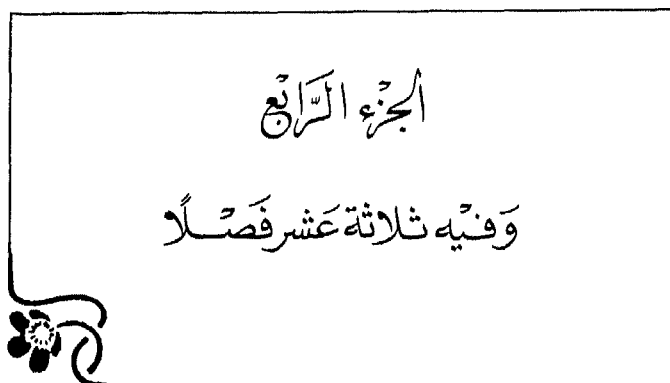 الجُزْء الرَّابْع
وَفيْه ثلاثة عَشر فَصْلاً